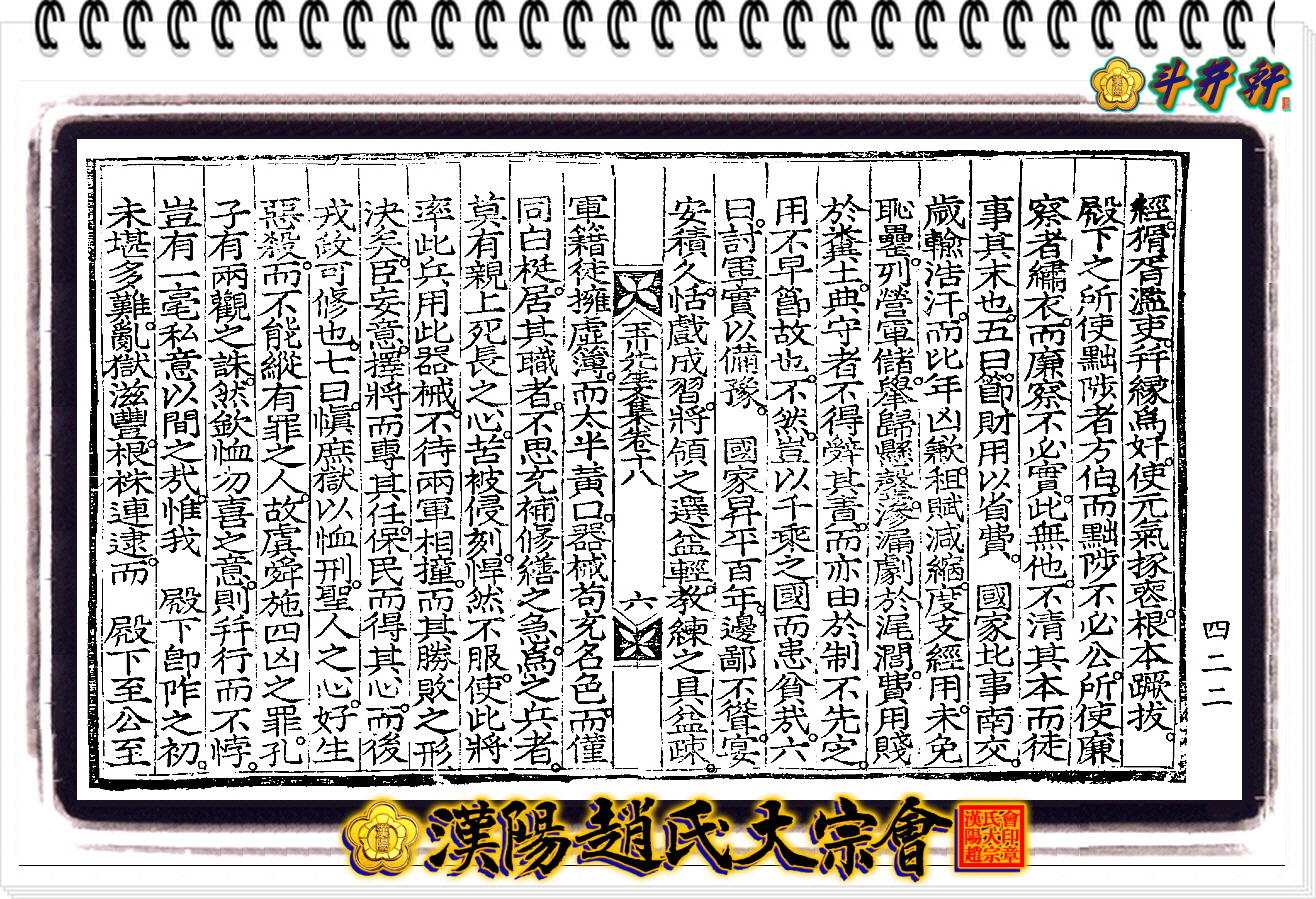 斗井軒
經。猾胥濫吏。幷緣爲奸。使元氣椓喪。根本蹶拔。
殿下之所使黜陟者方伯。而黜陟不必公。所使廉
察者繡衣。而廉察不必實。此無他。不清其本而徒
事其末也。五曰節財用以省費。 國家北事南交。
歲輸浩汗。而比年凶歉。租賦减縮。度支經用。未免
恥罍。列營軍儲。擧歸懸磬。滲漏劇於尾閭。費用賤
於糞土。典守者不得辭其責。而亦由於制不先定。
用不早節故也。不然。豈以千乘之國而患貧哉。六
曰。討軍實以備豫。 國家昇平百年。邊鄙不聳。宴
安積久。恬戲成習。將領之選益輕。敎練之具益踈。
弄丸先生文集卷十八 六
軍籍徒擁虛簿。而太半黃口。器械苟充名色。而僅
同白梃。居其職者。不思充補修繕之急。爲之兵者。
莫有親上死長之心。苦被侵刻。悍然不服。使此將
率此兵用此器械。不待兩軍相撞。而其勝敗之形
決矣。臣妄意。擇將而專其任。保民而得其心。而後
戎政可修也。七曰。愼庶獄以恤刑。聖人之心。好生
惡殺。而不能縱有罪之人。故虞舜施四凶之罪。孔
子有兩觀之誅。然欽恤勿喜之意。則幷行而不悖。
豈有一毫私意以間之哉。惟我 殿下卽阼之初。
未堪多難。亂獄滋豐。根株連逮。而 殿下至公至
四二二
漢陽趙氏大宗會
漢陽趙氏大宗會印章